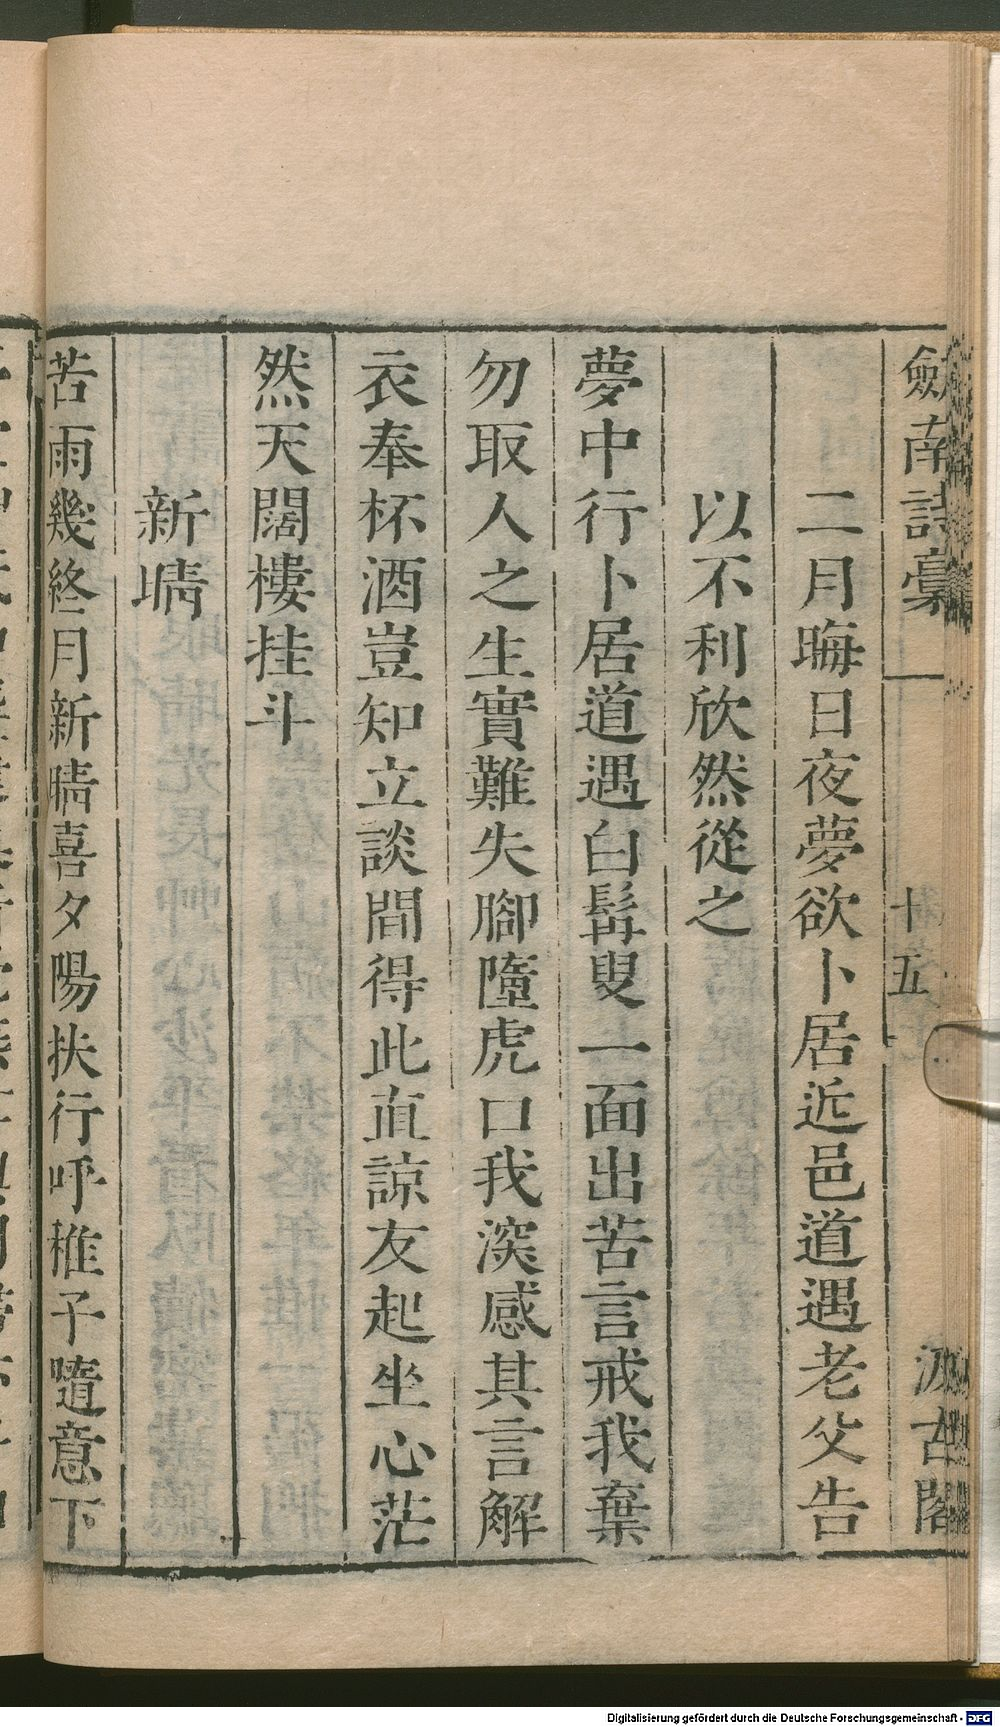 劍南詩稾
十五
汲古閣
二月晦日夜夢欲卜居近邑道遇老父告
以不利欣然從之
夢中行卜居道遇白髯叟一面出苦言戒我棄
勿取人之生實難失腳墮虎口我深感其言解
衣奉杯酒豈知立談間得此直諒友起坐心茫
然天闊樓挂斗
新晴
苦雨幾終月新晴喜夕陽扶行呼稚子隨意下
Digitalisierung gefördert durch die Deutsche Forschungsgemeinschaft - DFG